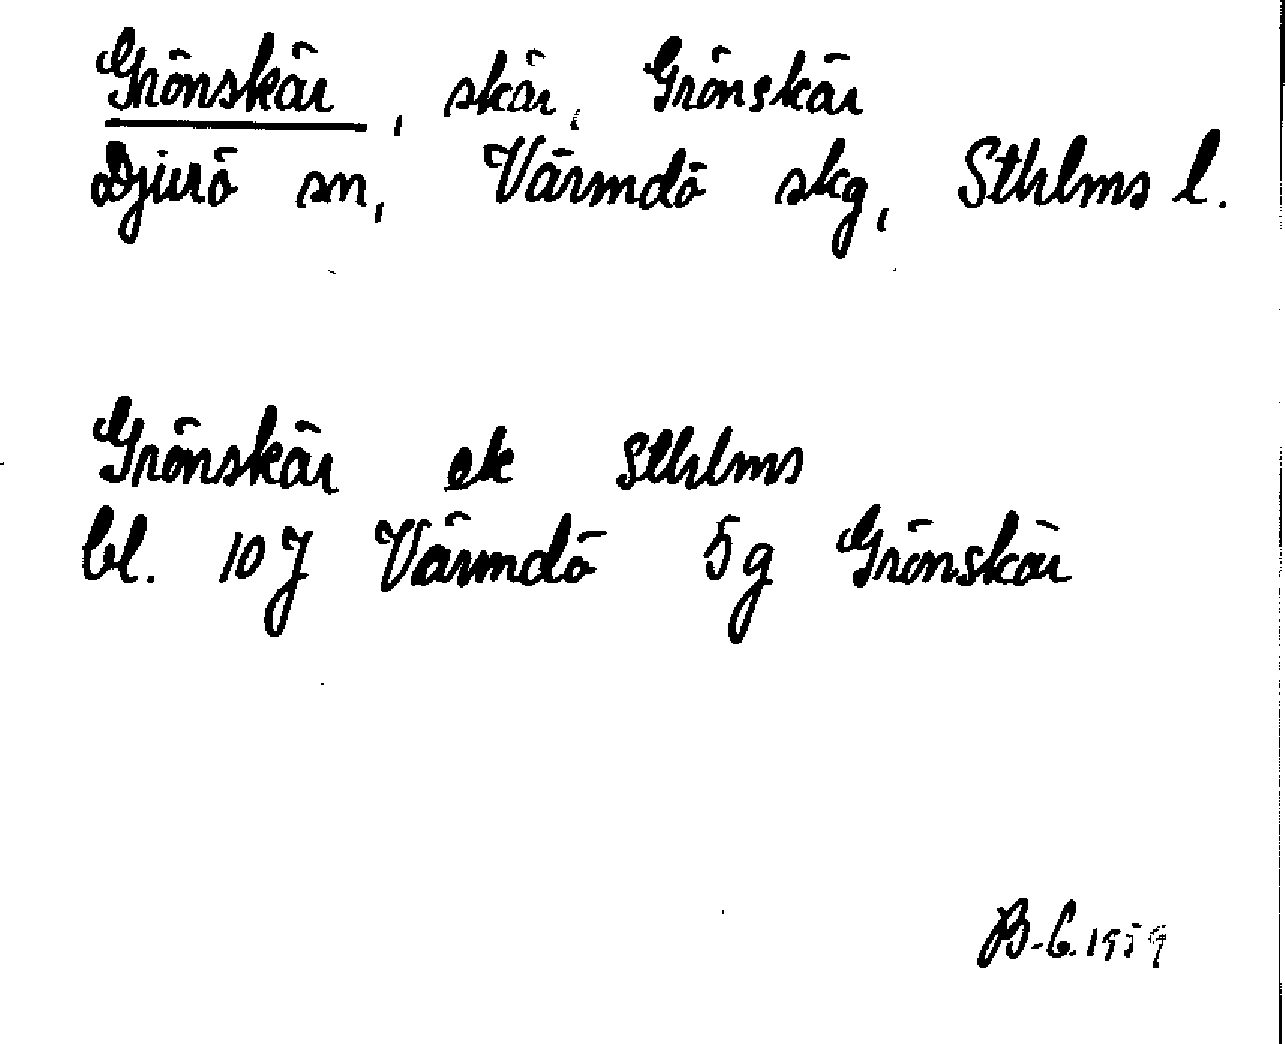 Grönskär, skär, Grönskär
Djurö sn, Värmdö skg, Sthlms l.
Grönskär ek Sthlms
bl. 10J Värmdö 5g Grönskär
B-C. 1959